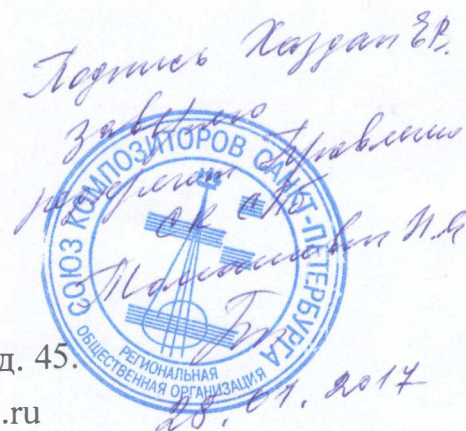 Подпись Хаздан Е.В.
заверяю
Правления
СК СПб
СОЮЗ КОМПОЗИТОРОВ САНКТ-ПЕТЕРБУРГА
РЕГИОНАЛЬНАЯ
ОБЩЕСТВЕННАЯ ОРГАНИЗАЦИЯ
д. 45.
.ru
2017